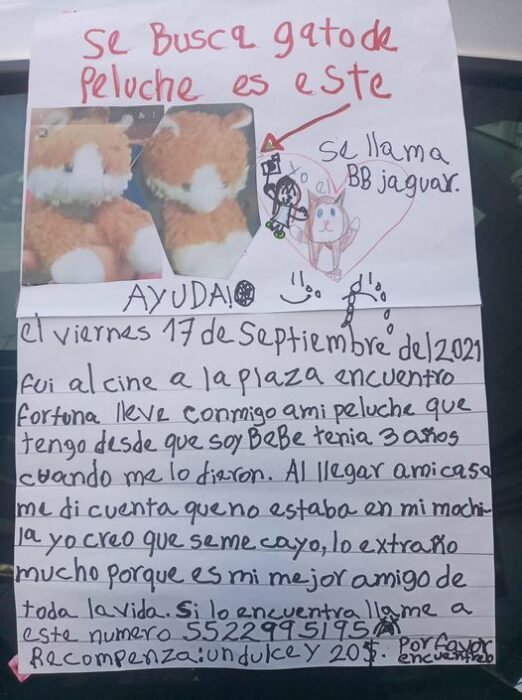 Se Busca gato de
Peluche es este
Se llama
BB jaguar.
yo el
AYUDA!
el viernes 17 de Septiembre del 2021
fui al cine a la plaza encuentro
fortuna lleve conmigo ami peluche que
tengo desde que soy BeBe tenia 3 años
cuando me lo dieron. Al llegar ami casa
me di cuenta que no estaba en mi mochi-
la yo creo que seme cayo, lo extraño
mucho porque es mi mejor amigo de
toda la vida. Si lo encuentra llame a
este numero 5522995195
Recompenza: un dulce y 20$. Por favor
encuentrelo